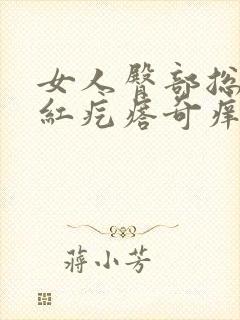 女人臀部总
红疙瘩奇痒
蒋小芳